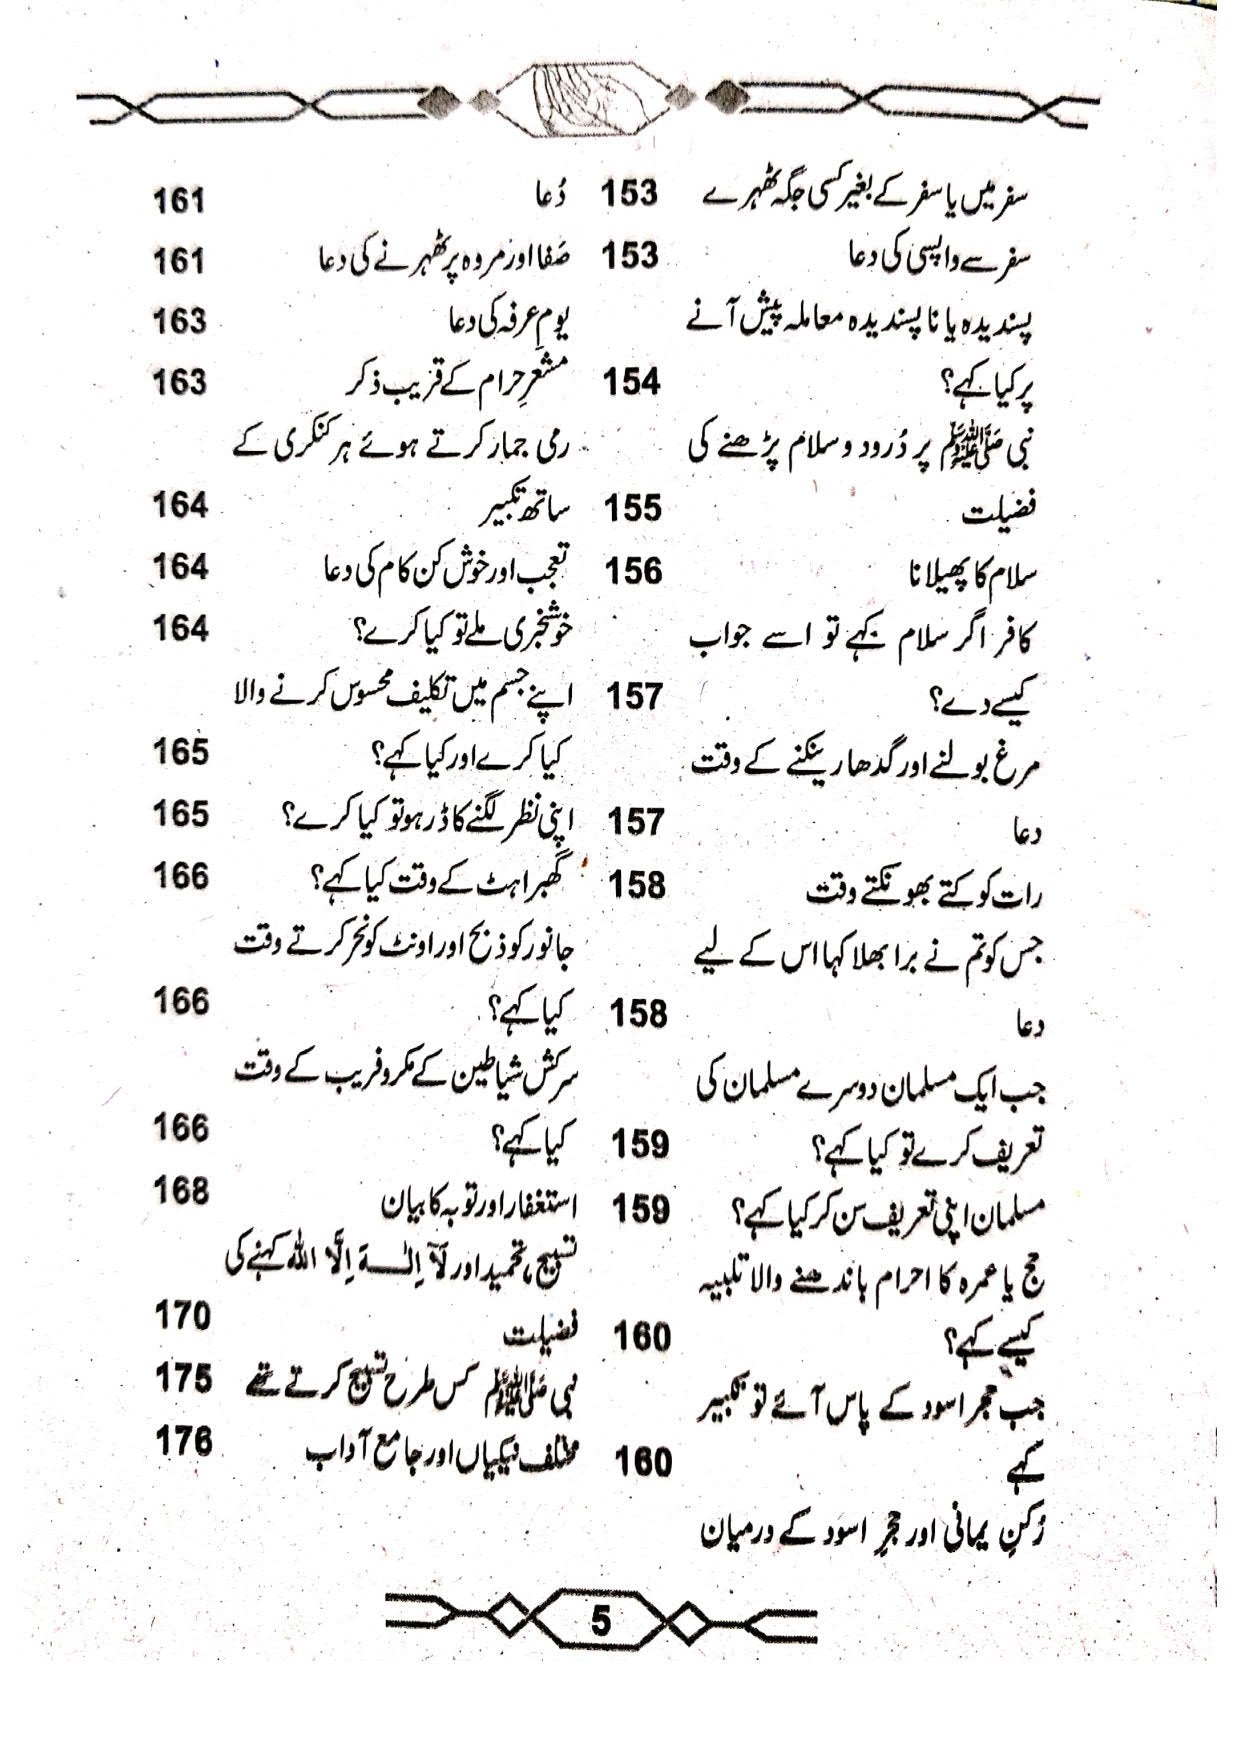 سفر میں یا سفر کے بغیر کسی جگہ ٹھہرے 153
سفر سے واپسی کی دعا 153
پسندیدہ یا ناپسندیدہ معاملہ پیش آنے
پر کیا کہے؟ 154
نبی ﷺ پر دُرود و سلام پڑھنے کی
فضیلت 155
سلام کا پھیلانا 156
کافر اگر سلام کہے تو اسے جواب
کیسے دے؟ 157
مرغ بولنے اور گدھا رینکنے کے وقت
دعا 157
رات کو کتے بھونکتے وقت 158
جس کو تم نے برا بھلا کہا اس کے لیے
دعا 158
جب ایک مسلمان دوسرے مسلمان کی
تعریف کرے تو کیا کہے؟ 159
مسلمان اپنی تعریف سن کر کیا کہے؟ 159
حج یا عمرہ کا احرام باندھنے والا تلبیہ
کیسے کہے؟ 160
جب حجر اسود کے پاس آئے تو تکبیر
کہے 160
رُکنِ یمانی اور حجرِ اسود کے درمیان
دُعا 161
صَفا اور مروہ پر ٹھہرنے کی دعا 161
یومِ عرفہ کی دعا 163
مشعرِ حرام کے قریب ذکر 163
رمی جمار کرتے ہوئے ہر کنکری کے
ساتھ تکبیر 164
تعجب اور خوش کن کام کی دعا 164
خوشخبری ملے تو کیا کرے؟ 164
اپنے جسم میں تکلیف محسوس کرنے والا
کیا کرے اور کیا کہے؟ 165
اپنی نظر لگنے کا ڈر ہو تو کیا کرے؟ 165
گھبراہٹ کے وقت کیا کہے؟ 166
جانور کو ذبح اور اونٹ کو نحر کرتے وقت
کیا کہے؟ 166
سرکش شیاطین کے مکر و فریب کے وقت
کیا کہے؟ 166
استغفار اور توبہ کا بیان 168
تسبیح، تحمید اور لَآ اِلٰـــهَ اِلَّا اللہ کہنے کی
فضیلت 170
نبی ﷺ کس طرح تسبیح کرتے تھے 175
مختلف نیکیاں اور جامع آداب 176
5